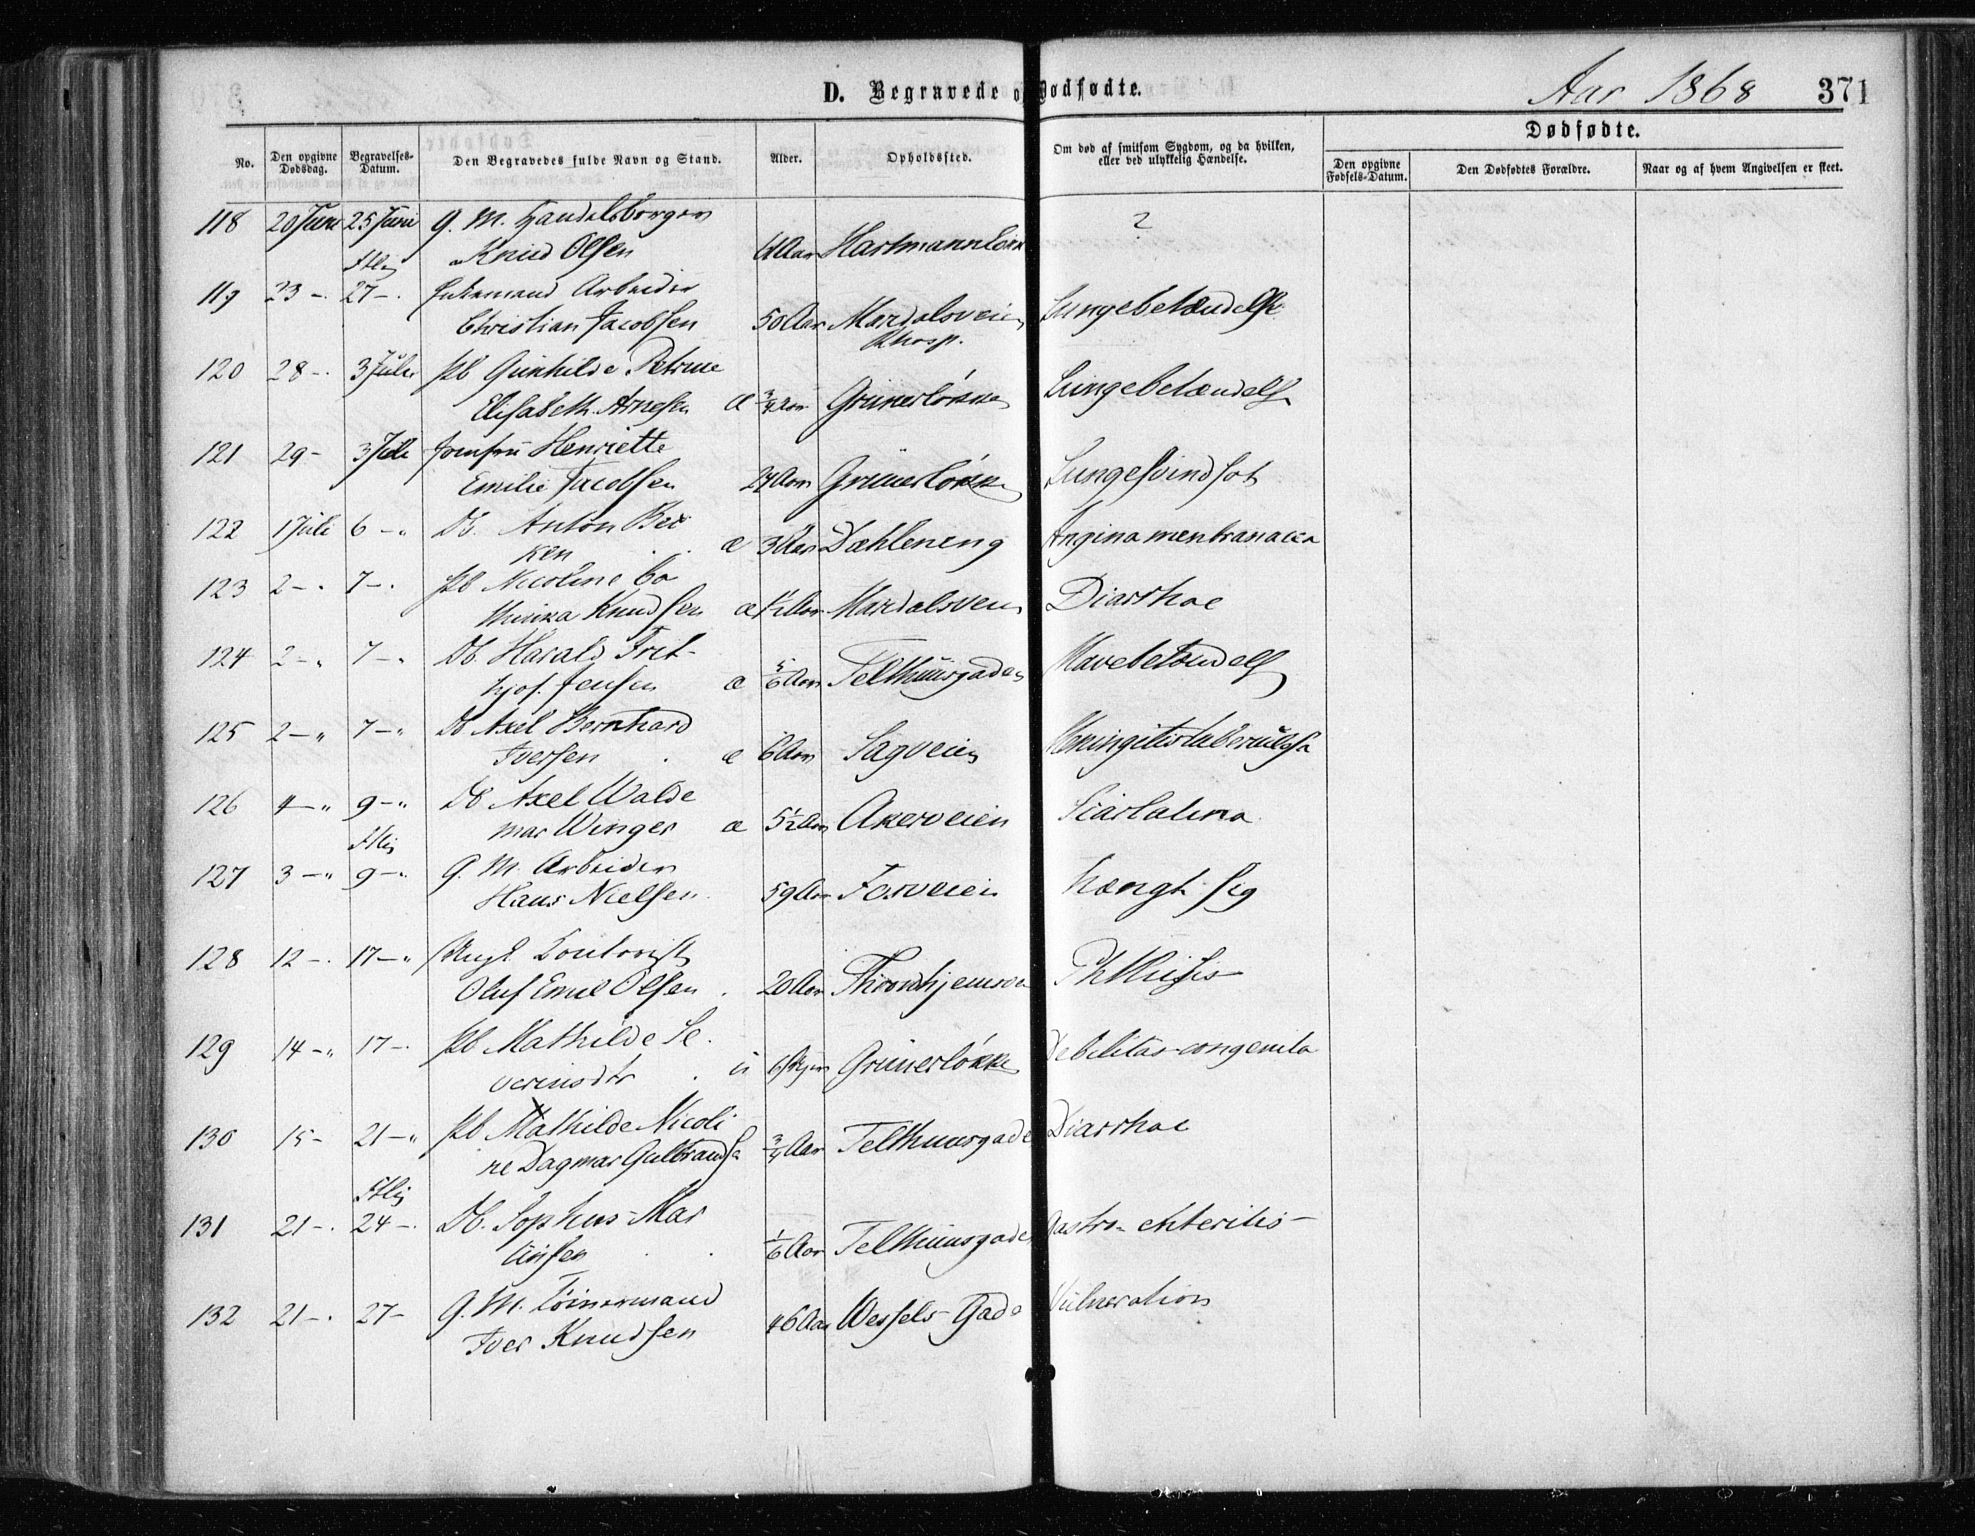 D. Begravede og Dødfødte.
Aar 1868
371
No.
Den opgivne Dødsdag.
Begravelses-Datum.
Den Begravedes fulde Navn og Stand.
Alder.
Opholdssted.
Om død af smitsom Sygdom, og da hvilken, eller ved ulykkelig Hændelse.
Dødfødte.
Den opgivne Fødsels-Datum.
Den Dødfødtes Forældre.
Naar og af hvem Angivelsen er skeet.
118 20 Juni 25 Juni G. M. Handelsborger
Knud Olsen Aar ?
119 23 -. 27 -. Enkemand Arbeider
Christian Jacobsen 50 Aar Maridalsveien Lungebetændelse
120 28 -. 3 Juli Pb Gunhilde Petrine
Elisabeth Arnesen æ 3/4 Aar Grünerløkken Lungebetændelse
121 29 - 3 Juli Jomfru Henriette
Emilie Jacobsen 24 Aar Grünerløkken Lungesvindsot
122 1 Juli 6 -" Db. Anton Bec
ken æ 3 Aar Dæhleneng Angina membranacea
123 2 -. 7 -. Pb Nicoline Ca
thinka Knudsen æ 1 1/2 Aar Maridalsveien Diarrhoe
124 2 -" 7 -" Db. Harald Frit-
hjof Jensen æ 5/6 Aar Telthuusgaden Mavebetændelse
125 2 -" 7 -" Db Axel Bernhard
Iversen æ 6 Aar Sagveien Meningitis tuberculosa
126 4 -" 9 -" Db Axel Walde
mar Winger æ 5 1/2 Aar Akerveien Scarlatina
127 3 -" 9 -" G. M. Arbeider
Hans Nielsen 59 Aar Fosveien hængt sig
128 12 -. 17 -" Ungk.
Oluf Emil Olsen 20 Aar Throndhjemsvei Phthisis
129 14 -" 17 -. Pb Mathilde Se
verinsdtr u 6 Grünerløkken Debilitas congenita
130 15 - 21 -" Pb Mathilde Nicoli
ne Dagmar Gulbrands 3/4 Aar Telthuusgade Diarrhoe
131 21 -. 24 -. Db. Sophus Mar
tinsen 1/6 Aar Telthuusgade Gastro-enteritis
132 21 -. 27 - G. M. Tøimermand
Iver Knudsen 46 Aar Wessels Gade Vulneration